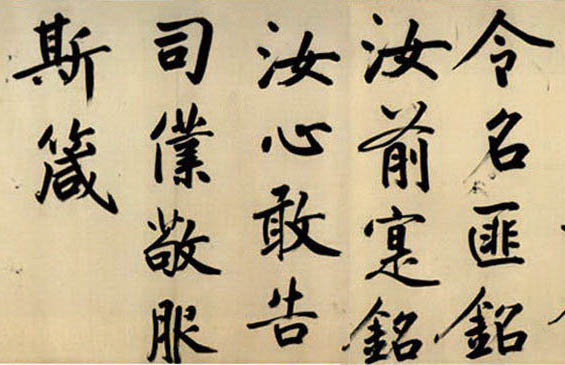 令名匪銘
汝前寔銘
汝心敢告
司僕敬服
斯箴